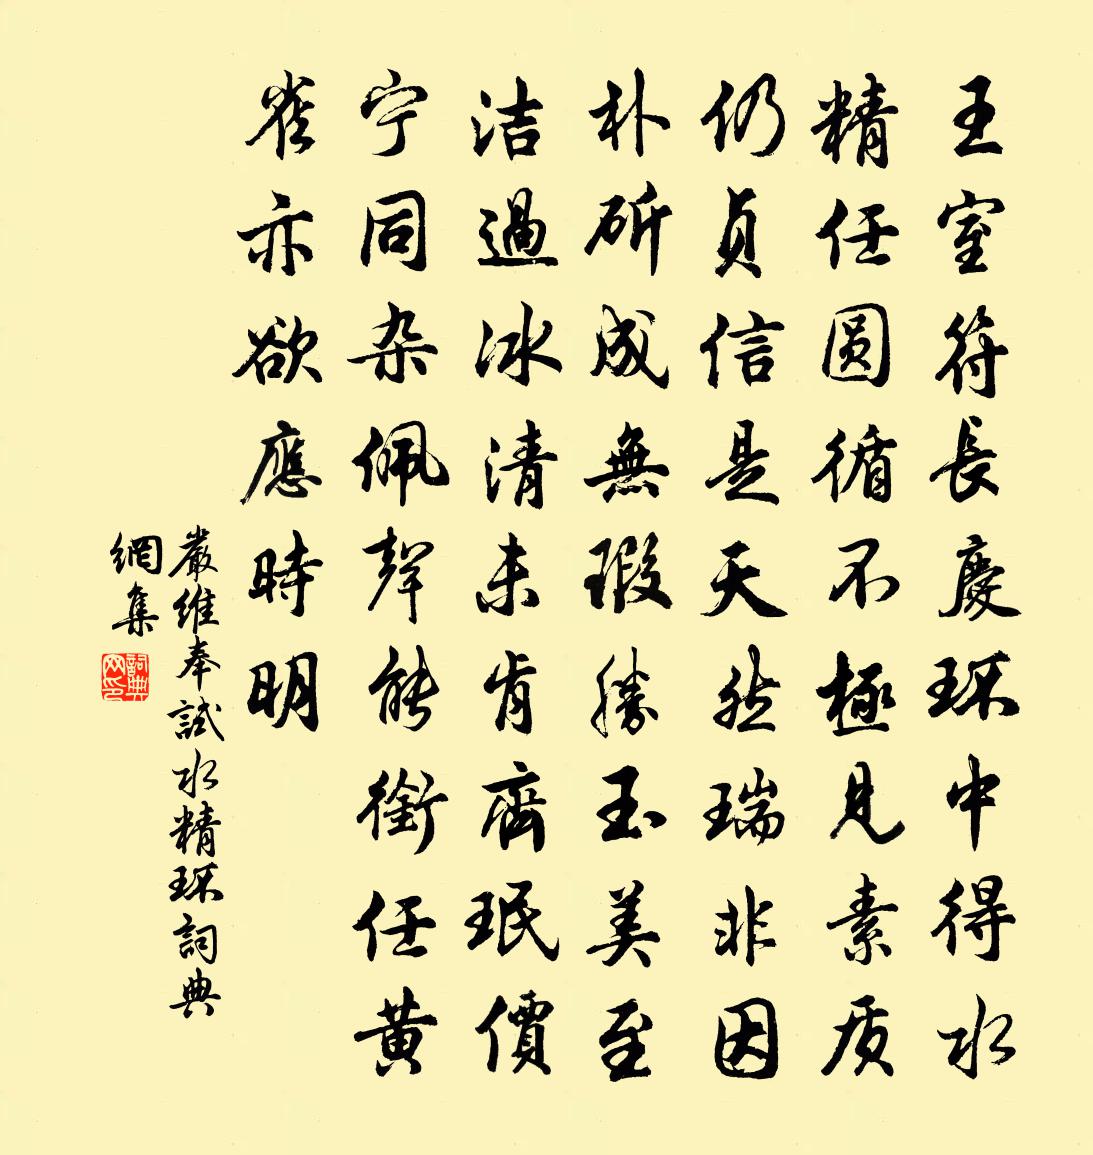 王室符長慶环中得水
精任圆循不極见素质
仍貞信是天然瑞非因
朴斫成無瑕勝玉美至
洁過冰清未肯齊珉價
宁同杂佩聲能銜任黄
雀亦欲應時明
嚴維奉試水精环詞典
網集
詞典
网印